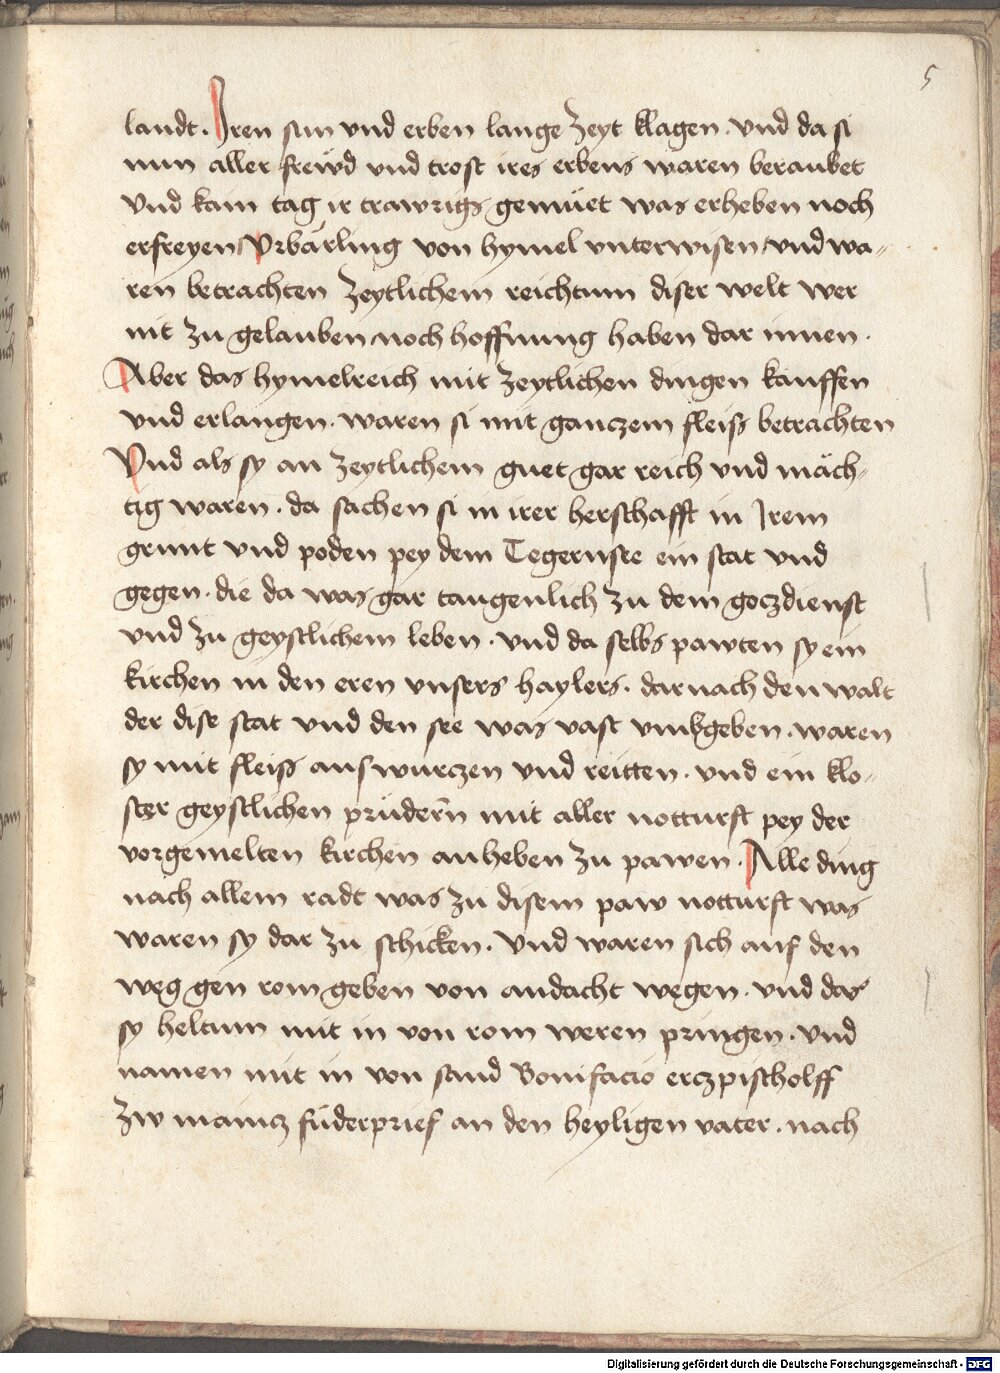 5
landt. Iren sun vnd erben lange zeyt klagen. vnd da si
nun aller frewd vnd trost ires erbens waren beraubet
Vnd kain tag ir trawrigs gemüet was erheben noch
erfreyen Vrbärling von hymel vnterwisen vnd wa-
ren betrachten zeytlichem reichtum diser welt wer
nit zu gelauben noch hoffnung haben dar innen.
Aber das hymelreich mit zeytlichen dingen kauffen
vnd erlangen. waren si mit ganczem fleiß betrachten
Vnd als sy an zeytlichem guet gar reich vnd mäch-
tig waren. da sachen si in irer herschafft in Irem
grunt vnd poden pey dem Tegernsee ein stat vnd
gegen. die da was gar taugenlich zu dem goczdienst
vnd zu geystlichem leben. vnd da selbs pawten sy ein
kirchen in den eren vnsers haylers. darnach den walt
der dise stat vnd den see was vast vmbgeben. waren
sy mit fleiß auswurczen vnd reitten. vnd ein klo-
ster geystlichen prüdern mit aller notturft pey der
vorgemelten kirchen anheben zu pawen. Alle ding
nach allem radt was zu disem paw notturft was
waren sy dar zu schicken. Vnd waren sich auf den
weg gen rom geben von andacht wegen. vnd das
sy heltum mit in von rom weren pringen. vnd
namen mit in von sand Bonifacio erczpischolff
zw maincz füderprief an den heyligen vater. nach
Digitalisierung gefördert durch die Deutsche Forschungsgemeinschaft - DFG